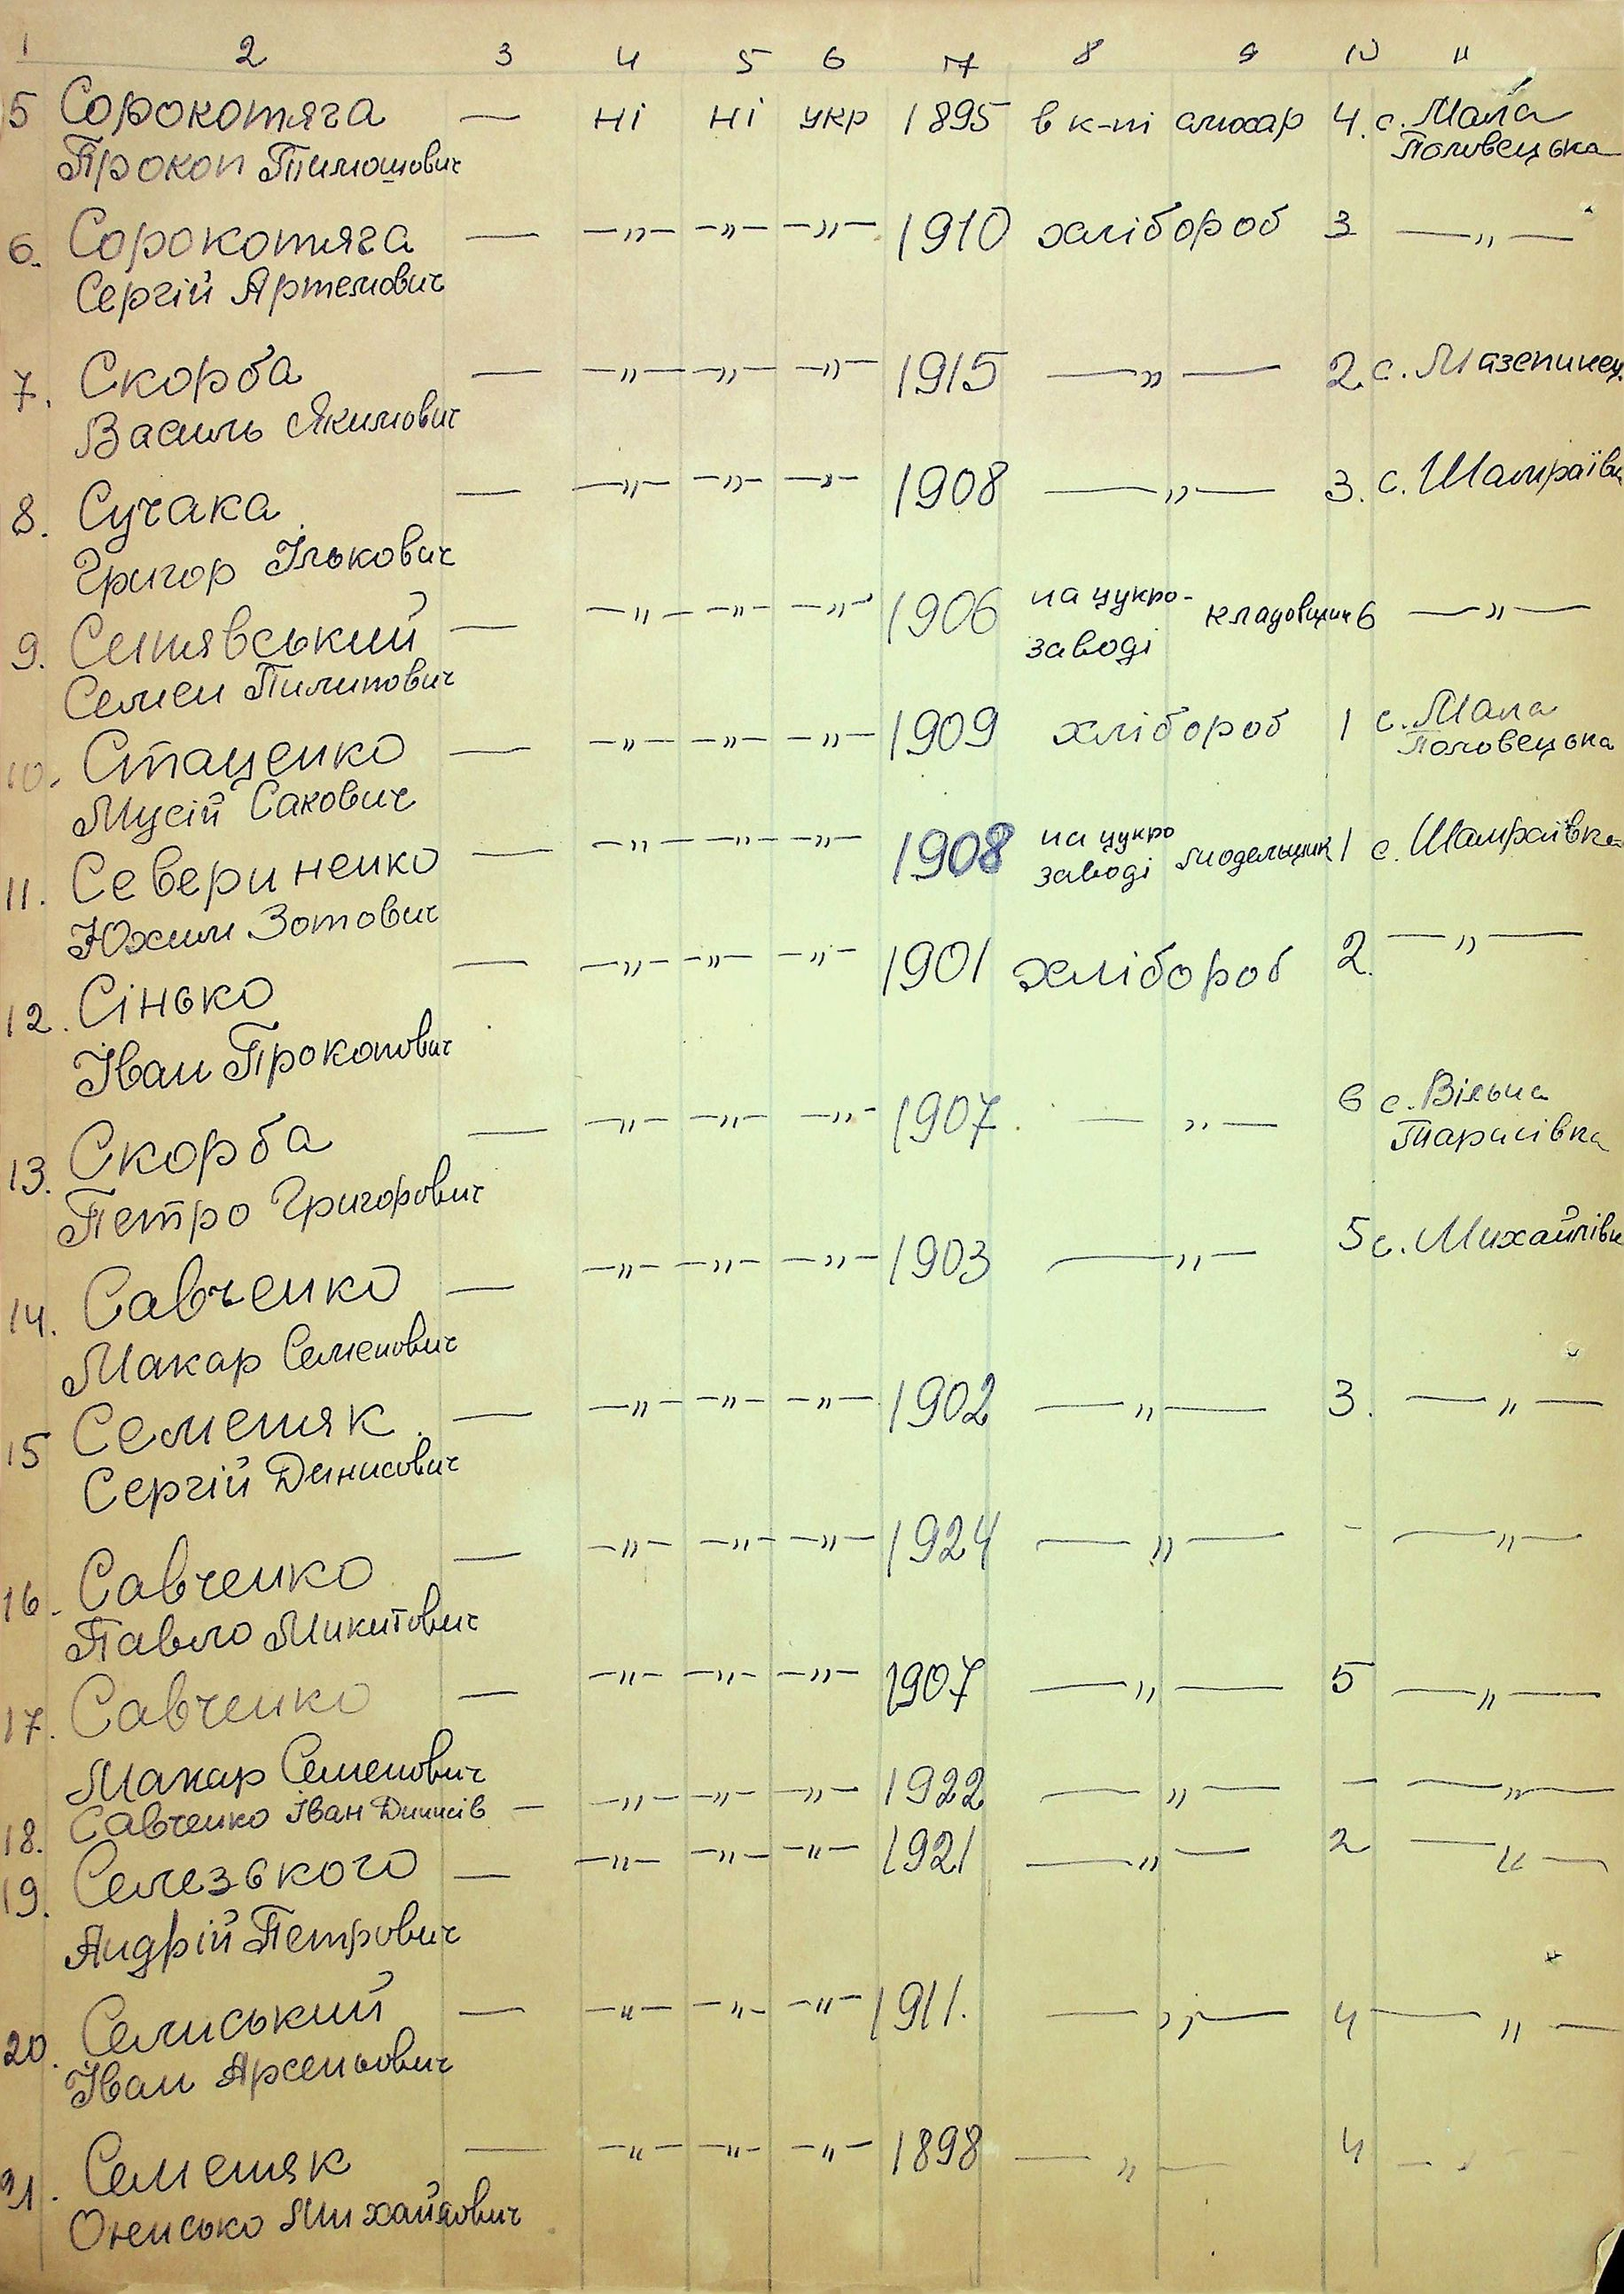 1 2 3 4 5 6 7 8 9 10 11
5 Сорокотяга — ні ні укр 1895 в к-пі слюсар 4. с. Мала
Прокоп Тимошович Половецька
6. Сорокотяга — —„— —„— —„— 1910 хлібороб 3 —„—
Сергій Артемович
7. Скорба — —„— —„— —„— 1915 —„— 2 с. Мазепинец
Василь Якимович
8. Сучака — —„— —„— —„— 1908 —„— 3. с. Шамраївк
Григор Ількович
9. Ситявський — —„— —„— —„— 1906 на цукро- кладовщик 6 —„—
Семен Пилипович заводі
10. Стаценко — —„— —„— —„— 1909 хлібороб 1 с. Мала
Мусій Сакович Половецька
11. Севериненко — —„— —„— —„— 1908 на цукро модельщик 1 с. Шамраївка
Юхим Зотович заводі
12. Сінько — —„— —„— —„— 1901 хлібороб 2. —„—
Іван Прокопович
13. Скорба — —„— —„— —„— 1907 —„— 6 с. Вільна
Петро Григорович Тарасівка
14. Савченко — —„— —„— —„— 1903 —„— 5 с. Михайлівк
Макар Семенович
15 Семеняк — —„— —„— —„— 1902 —„— 3. —„—
Сергій Динисович
16. Савченко — —„— —„— —„— 1924 —„— - —„—
Павло Микитович
17. Савченко — —„— —„— —„— 1907 —„— 5 —„—
Макар Семенович
18. Савченко Іван Динисів — —„— —„— —„— 1922 —„— — —„—
19. Селезького — —„— —„— —„— 1921 —„— 2 —„—
Андрій Петрович
20. Селиський — —„— —„— —„— 1911. —„— 4 —„—
Іван Арсеньович
21. Семеняк — —„— —„— —„— 1898 —„— 4 —„
Онисько Михайлович